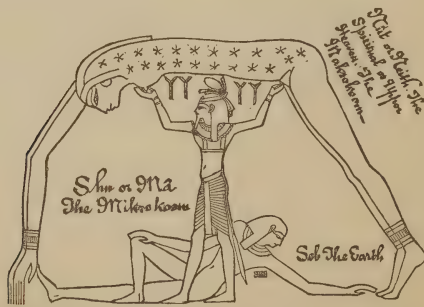 Nut or Neith. The
Spiritual or Upper
Heaven. The
Makrokosm
Shu or Mā
The Mikrokosm
Seb The Earth